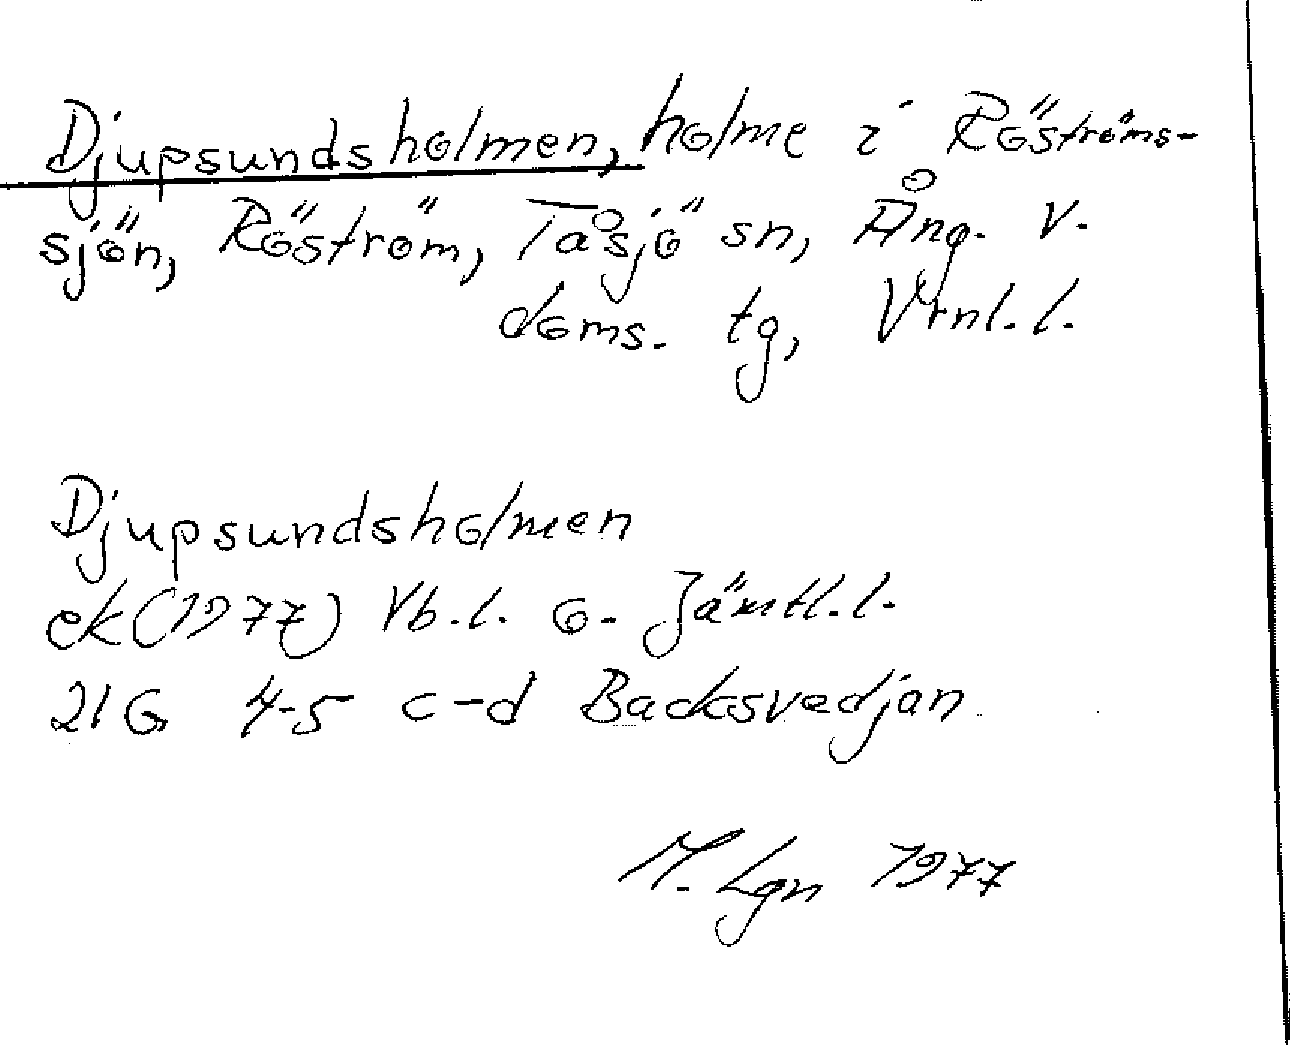 Djupsundsholmen, holme i Röströms-
sjön, Röström, Tåsjö sn, Ång. v.
doms. tg, Vrnl. l.
Djupsundsholmen
ek (1977) Vb. l. o. Jämtl. l.
21G 4-5 c-d Backsvedjan
M. Lgn 1977